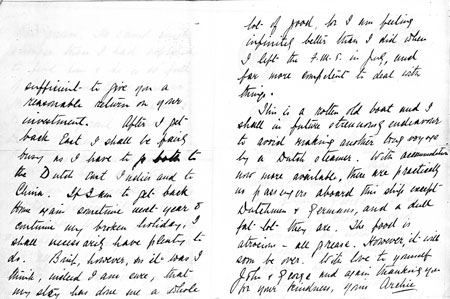 sufficient to give you a
reasonable return on your
investment. After I get
back East I shall be fairly
busy as I have to go both to
the Dutch East Indies and to
China. If I am to get back
home again sometime next year &
continue my broken holiday, I
shall necessarily have plenty to
do. Brief, however, as it was I
think, indeed I am sure, that
my stay has done me a whole
lot of good, for I am feeling
infinitely better than I did when
I left the F.M.S. in July, and
far more competent to deal with
things.
This is a rotten old boat and I
shall in future strenuously endeavour
to avoid making another long voyage
by a Dutch steamer. With accommodation
now more available, there are practically
no passengers aboard this ship except
Dutchmen & Germans, and a dull
fat lot they are. The food is
atrocious - all grease. However, it will
soon be over. With love to yourself
John & George and again thanking you
for your kindness, yours Archie